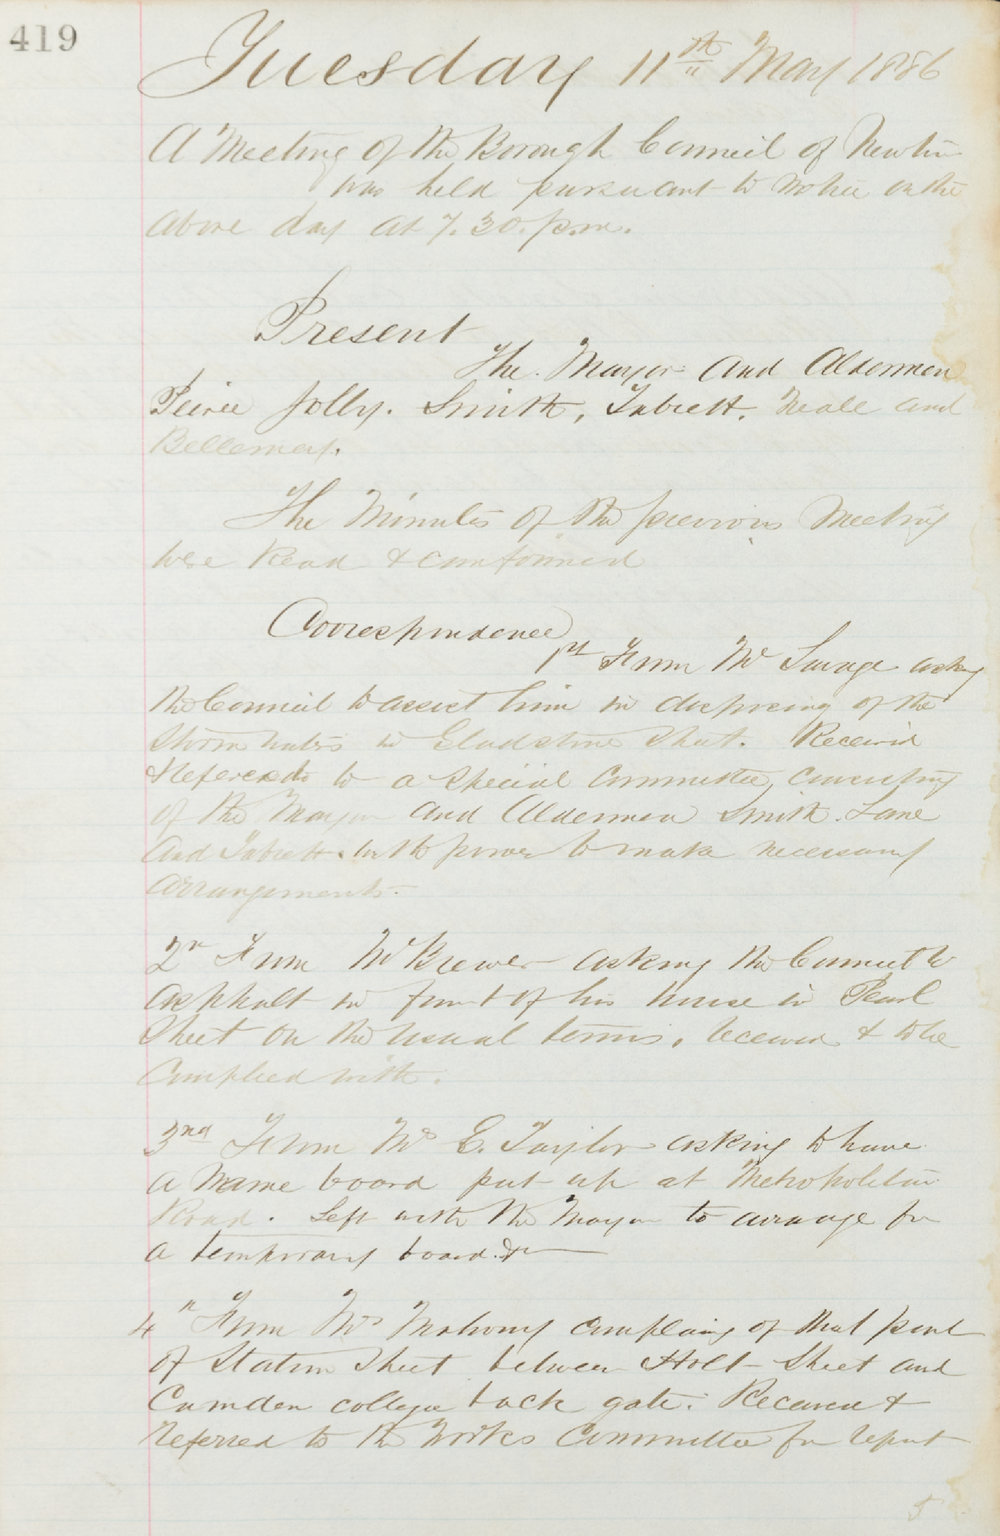 419
Tuesday 11th May 1886
A Meeting of the Borough Council of Newtn
was held pursuant to notice on the
above day at 7.30. p.m.
Present
The Mayor and Aldermen
Peirce Jolly. Smith, Tabrett, Neale and
Bellemey.
The Minutes of the previous Meeting
were Read & confirmed
Correspondence
1st From Mr Savage asking
the Council to assist him in disposing of the
Storm waters in Gladstone Street. Received
& Refered to a special Committee consisting
of the Mayor and Aldermen Smith. Lane
and Tabrett. with power to make necessary
arrangements.
2n From Mr Brewer asking the Council to
asphalt in front of his house in Pearl
Street on the usual terms, received & to be
complied with.
3rd From Mr E. Taylor asking to have
a Name board put up at Metropolitan
Road. Left with the Mayor to arrange for
a temporary board. &c
4n From Mrs Mahony complaing of that part
of Station Street between Holt Street and
Camden college back gate. Received &
Referred to the Works Committee for report
5